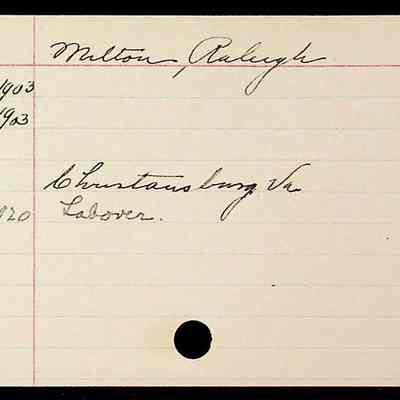 Milton, Raleigh
1903
1903
Christansburg Va
120 Laborer.